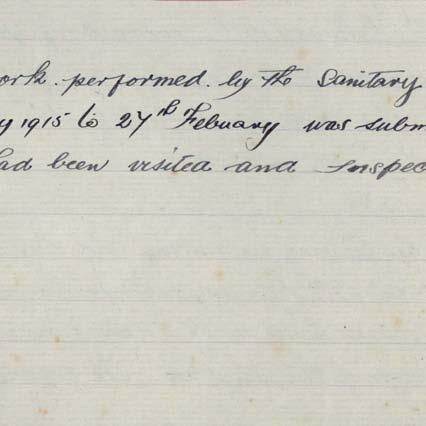 ork. performed. by the Sanitary
y 1915 to 27th Febuary was subm
had been visited and Inspec